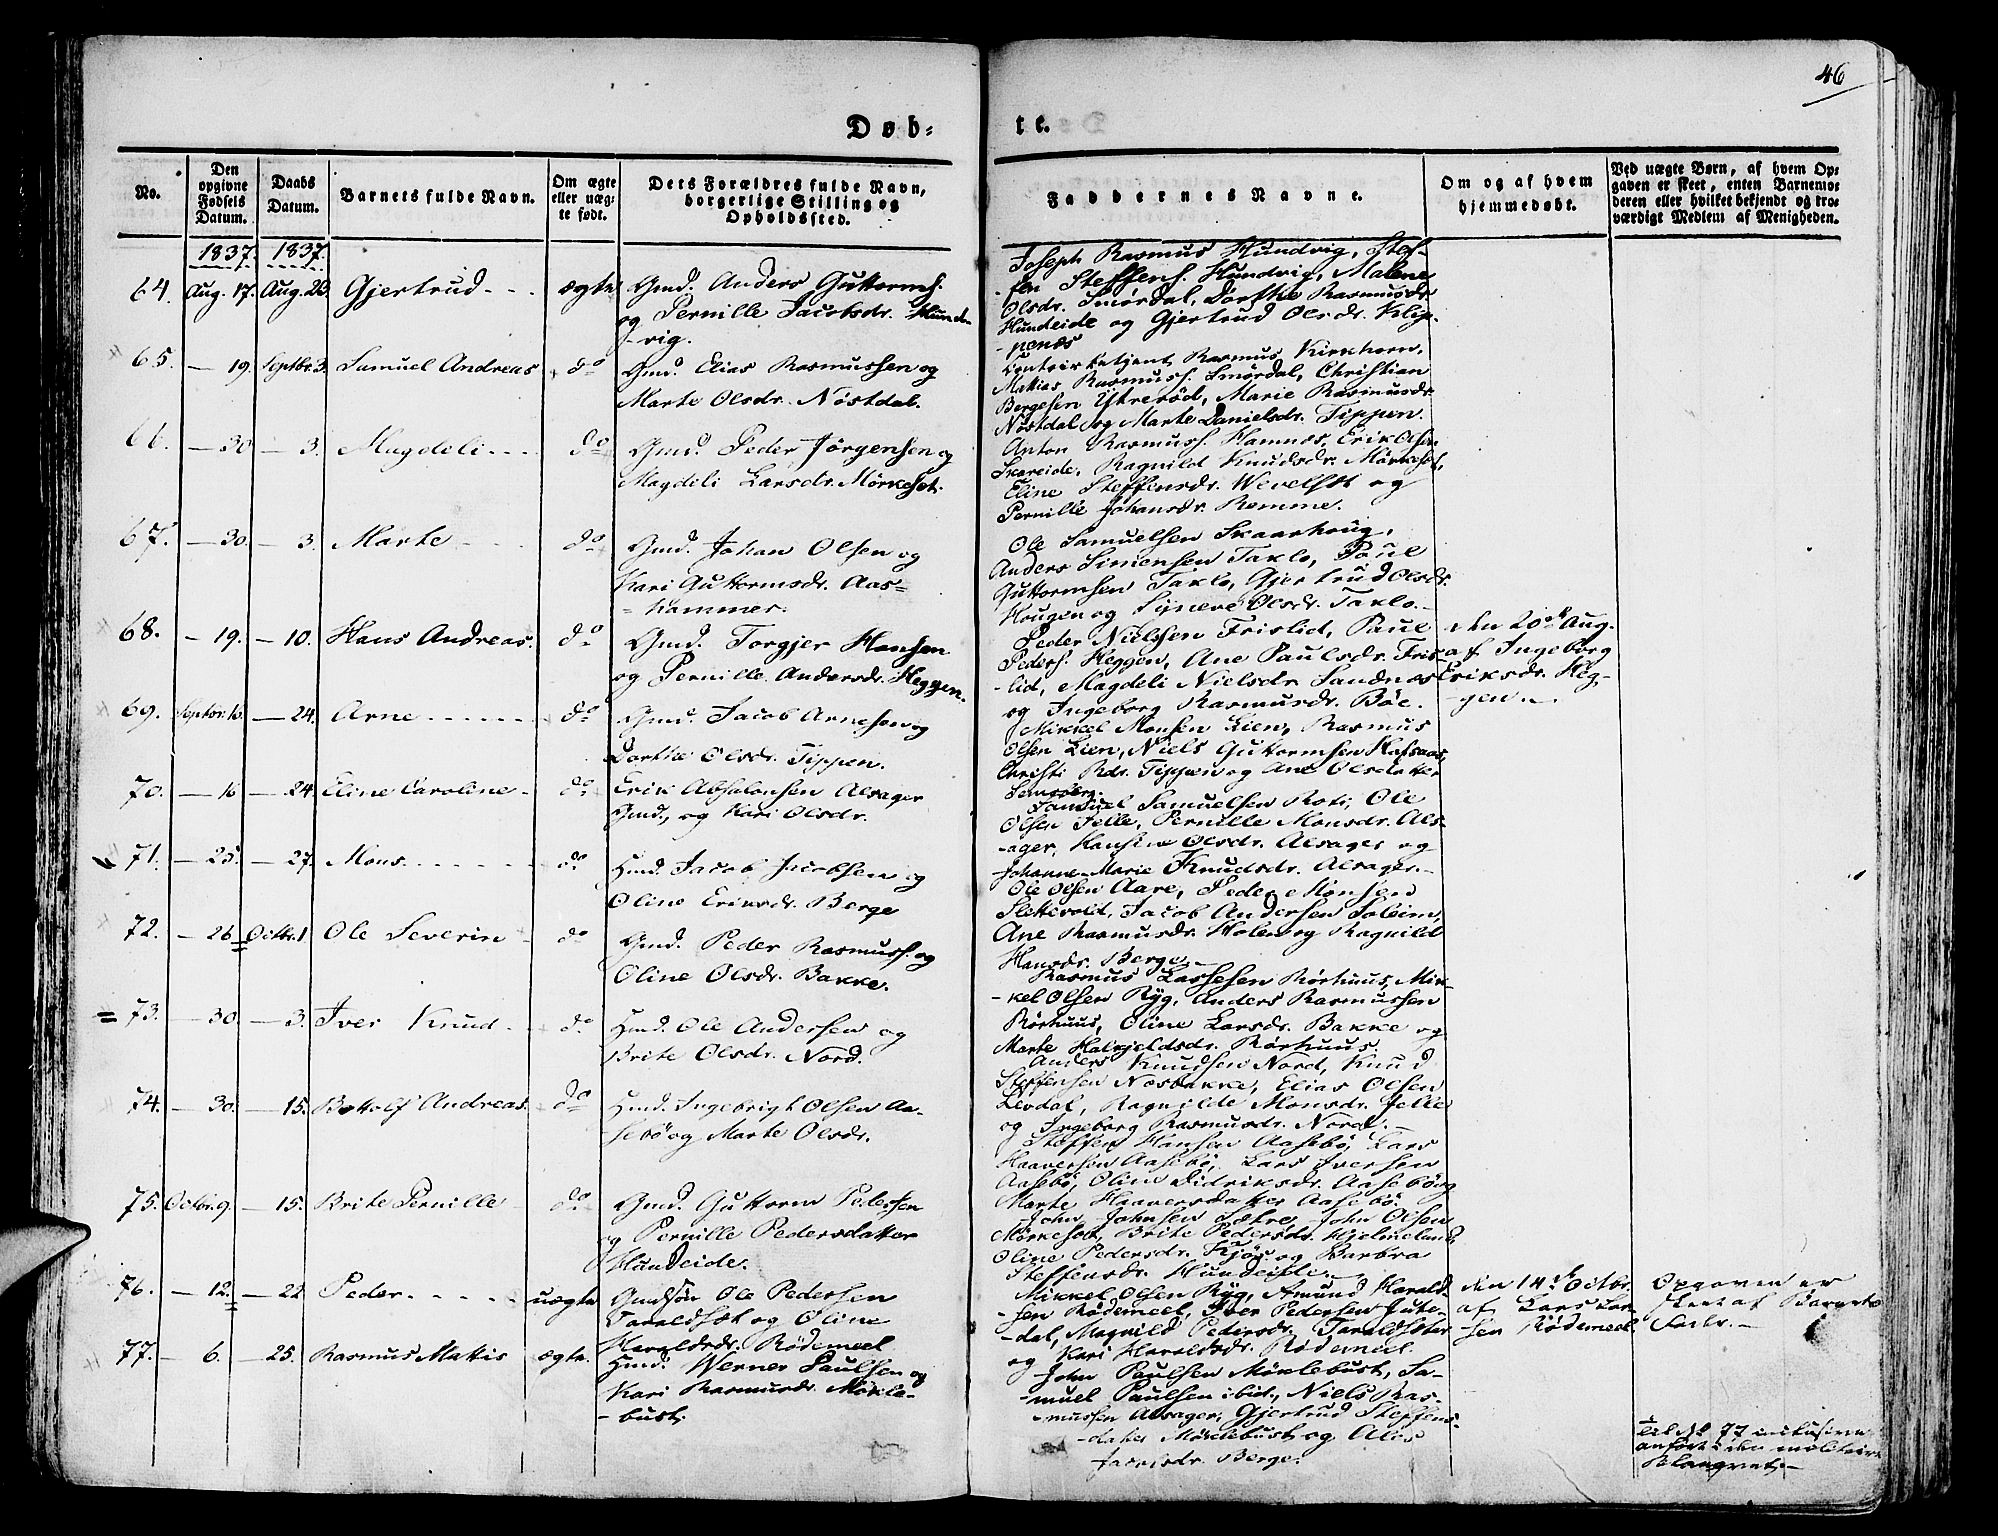 46
Døb=
te.
No.
Den opgivne Fødsels Datum.
Daabs Datum.
Barnets fulde Navn.
Om ægte eller uæg-
te født.
Dets Forældres fulde Navn,
borgerlige Stilling og
Opholdssted.
Faddernes Navne.
Om og af hvem
hjemmedøbt.
Ved uægte Børn, af hvem Op-
gaven er skeet, enten Barnemo-
deren eller hvilket bekjendt og tro-
værdigt Medlem af Menigheden.
1837. 1837.
64. Aug. 17. Aug. 20. Gjertrud ægte Gmd. Anders Guttorms.
og Pernille Jacobsdr. Hund-
-vig.
Joseph Rasmus Hundvig, Stef-
-fen Steffens. Hundvig, Malene
Olsdr. Smørdal, Dorthe Rasmusdr.
Hundeide og Gjertrud Olsdr. Klip-
-penæs
65. — 19. Septbr. 3. Samuel Andreas do Gmd. Elias Rasmussen og
Marte Olsdr. Nøstdal.
Rasmus Kirkhorn,
Mathias Rasmuss. Smørdal, Christian
Bergesen Ytrerød, Marie Rasmusdr.
Nøstdal og Marte Danielsdr. Tippen.
66. — 30 — 3. Magdeli do Gmd. Peder Jørgensen og
Magdeli Larsdr. Mørkeset.
Anton Rasmuss. Hamnes, Erik Olsen
Skareide, Ragnild Knudsdr. Mørkeset,
Eline Steffensdr. Wevelset og
Pernille Johansdr. Remme.
67. — 30. — 3. Marte do Gmd. Johan Olsen og
Kari Guttormsdr. Aas=
=kammer.
Ole Samuelsen Skaarhoug,
Anders Simensen Taklo, Paul
Guttormsen Taklo, Gjertrud Olsdr.
Hougen og Synneve Olsdr. Taklo.
68. — 19. — 10. Hans Andreas. do Gmd. Torgjer Hansen
og Pernille Andersdr. Heggen.
Peder Nielsen Frislid, Paul
Peders. Heggen, Ane Paulsdr. Fris-
-lid, Magdeli Nielsdr. Sandnes
og Ingeborg Rasmusdr. Bøe.
den 20de Aug.
af Ingeborg
Eriksdr. Heg-
-gen.
69. Septbr. 16. — 24. Arne do Gmd. Jacob Arnesen og
Dorthe Olsdr. Tippen.
Mikkel Monsen Lien, Rasmus
Olsen Lien, Niels Guttormsen Hafsaas,
Christi Rdr. Tippen og Ane Olsdatter
70. — 16 — 24. Eline Caroline do Erik Absalonsen Alsager
Gmd., og Kari Olsdr.
Samuel Samuelsen Roti, Ole
Olsen Felle, Pernille Monsdr. Als-
-ager, Hansine Olsdr. Alsager og
Johanne Marie Knudsdr. Alsager.
71. — 25. — 27. Mons do Hmd. Jacob Jacobsen og
Oline Eriksdr. Berge
Ole Olsen Aare, Peder Monsen
Slettevold, Jacob Andersen Soleim,
Ane Rasmusdr. Holen og Ragnild
Hansdr. Berge
72. — 26 Octbr. 1 Ole Severin do Gmd. Peder Rasmuss. og
Oline Olsdr. Bakke.
Rasmus Lassesen Rørhuus, Mik-
-kel Olsen Ryg, Anders Rasmussen
Rørhuus, Oline Larsdr. Bakke og
Marte Halkjeldsdr. Rørhuus.
73. — 30. — 3. Iver Knud do Hmd. Ole Andersen og
Brite Olsdr. Nord.
Anders Knudsen Nord, Knud
Steffensen Nosbakke, Elias Olsen
Levdal, Ragnilde Monsdr. Felle
og Ingeborg Rasmusdr. Nord.
74. — 30. — 15. Bottolf Andreas. do Hmd. Ingebrigt Olsen Aa-
sebø og Marte Olsdr.
Steffen Hansen Aasebø, Lars
Haaversen Aasebø, Lars Iversen
Aasebø, Oline Didriksdr. Aasebø og
Marte Haaversdatter Aasebø.
75. Octbr. 9. — 15. Brite Pernille do Gmd. Guttorm Pedersen
og Pernille Pedersdatter
Hundeide.
John Johnsen Sætre, John Olsen
Mørkeset, Brite Pedersdr. Hjelmeland,
Oline Pedersdr. Kjøs og Barbra
Steffensdr. Hundeide.
76. — 12. — 22 Peder uægte Gmdsøn Ole Pedersen
Taraldset og Oline
Haraldsdr. Rødemeel
Mikkel Olsen Ryg, Amund Harald-
-sen Rødemeel, Iver Pedersen Jute-
-dal, Magnild Pedersdr. Taraldsæter
og Kari Haraldsdr. Rødemeel.
den 14de Octbr.
af Lars Lar-
-sen Rødemeel.
Opgaven er
skeet af Barnets
Fader.
77. — 6. — 25. Rasmus Mattis ægte. Hmd. Werner Paulsen og
Kari Rasmusdr. Møkle-
-bust.
John Paulsen Møklebust, Sa-
-muel Paulsen ibid., Niels Ras-
-mussen Alsager, Gjertrud Steffens-
-datter Møklebust og Ales
Jacobsdr. Berge.
til No 77 inclusive
anført i den militaire